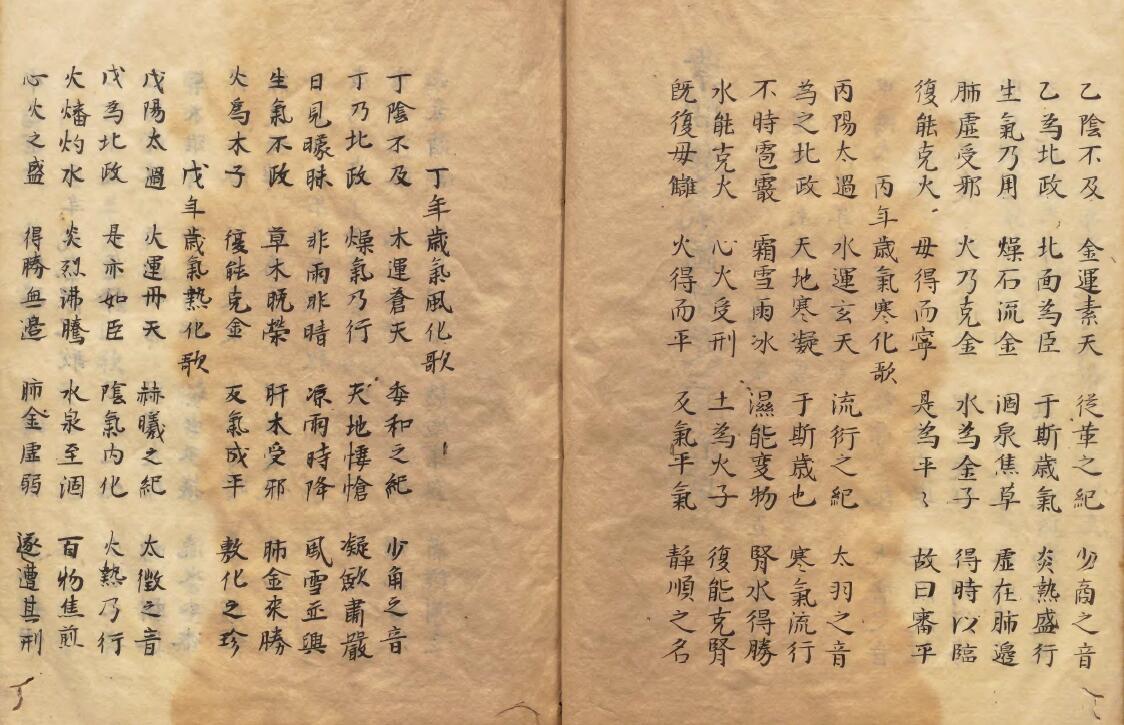 乙陰不及 金運素天 從革之紀 少商之音
乙為北政 北面為臣 于斯歲氣 炎熱盛行
生氣乃用 燥石流金 涸泉焦草 虛在肺邊
肺虛受邪 火乃克金 水為金子 得時以臨
復能克火 母得而寧 是為平〻 故曰審平
丙年歲氣寒化歌
丙陽太過 水運玄天 流衍之紀 太羽之音
為之北政 天地寒凝 于斯歲也 寒氣流行
不時雹霰 霜雪雨冰 濕能变物 腎水得勝
水能克火 心火受刑 土為火子 復能克腎
既復母讎 火得而平 反氣平氣 靜順之名
丁年歲氣風化歌
丁陰不及 木運蒼天 委和之紀 少角之音
丁乃北政 燥氣乃行 天地悽愴 凝歛肅嚴
日見曚昧 非雨非暗 凉雨時降 風雪並興
生氣不政 草木晩榮 肝木受邪 肺金來勝
火爲木子 復能克金 反氣成平 敷化之珍
戊年歲氣熱化歌
戊陽太過 火運丹天 赫曦之紀 太徵之音
戊為北政 是亦如臣 陰氣內化 火熱乃行
火燔灼水 炎烈沸騰 水泉至涸 百物焦煎
心火之盛 得勝無邊 肺金虛弱 遂遭其刑